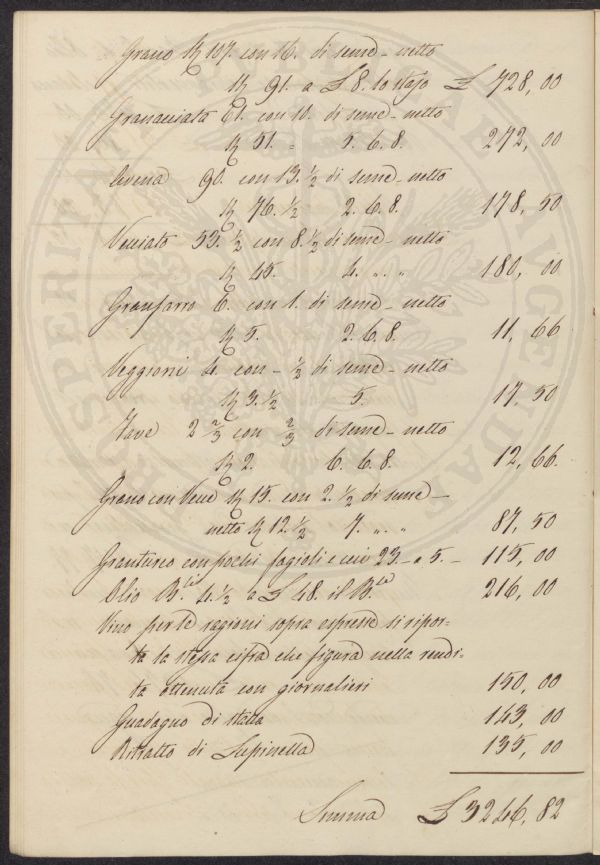 Grano St 107. con 16. di seme - netto
St 91. a £ 8. lo stajo £ 728,00
Granacciata 61. con 10. di seme - netto
St 51. " 5. 6. 8. 272,00
Avena 90. con 13. ½ di seme - netto
St 76. ½ 2. 6. 8. 178,50
Vecciato 53. ½ con 8. ½ di seme - netto
St 45. 4. " " 180,00
Granfarro 6. con 1. di seme - netto
St 5. 2. 6. 8. 11,66
Veggioni 4. con - ½ di seme - netto
St 3. ½ 5. 17,50
Fave 2 ⅔ con ⅔ di seme - netto
St 2. 6. 6. 8. 12,66.
Grano con Vecce St 15. con 2. ½ di seme -
netto St 12. ½ 7. " " 87,50
Granturco con pochi fagioli e ceci 23 - a 5. - 115,00
Olio B.li 4. ½ a £ 48. il B.le 216,00
Vino per le ragioni sopra espresse si ripor-
ta la stessa cifra che figura nella rendi-
ta ottenuta con giornalieri 150,00
Guadagno di stalla 143,00
Ritratto di Lupinella 135,00
Somma £ 3246,82
PROSPERITATI PUBLICAE AVGENDAE